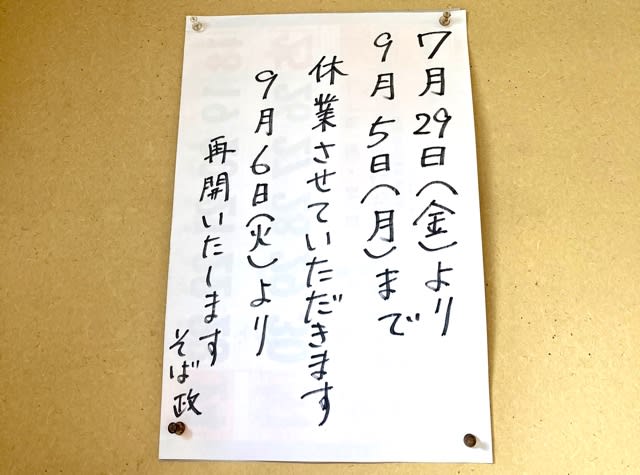 7月29日(金)より
9月5日(月)まで
休業させていただきます
9月6日(火)より
再開いたします
そば政